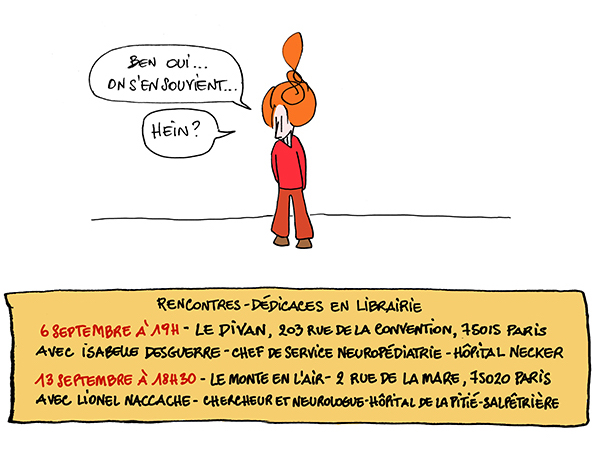 BEN OUI...
ON S'EN SOUVIENT...
HEIN?
RENCONTRES-DÉDICACES EN LIBRAIRIE
6 SEPTEMBRE À 19H - LE DIVAN, 203 RUE DE LA CONVENTION, 75015 PARIS
AVEC ISABELLE DESGUERRE - CHEF DE SERVICE NEUROPÉDIATRIE - HÔPITAL NECKER
13 SEPTEMBRE À 18H30 - LE MONTE EN L'AIR - 2 RUE DE LA MARE, 75020 PARIS
AVEC LIONEL NACCACHE - CHERCHEUR ET NEUROLOGUE - HÔPITAL DE LA PITIÉ-SALPÊTRIÈRE